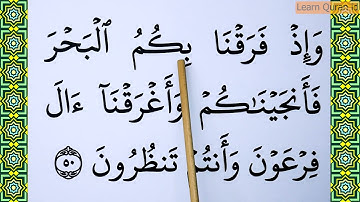 Learn Quran id
وَإِذْ فَرَقْنَا بِكُمُ ٱلْبَحْرَ
فَأَنجَيْنَـٰكُمْ وَأَغْرَقْنَآ ءَالَ
فِرْعَوْنَ وَأَنتُمْ تَنظُرُونَ ٥٠